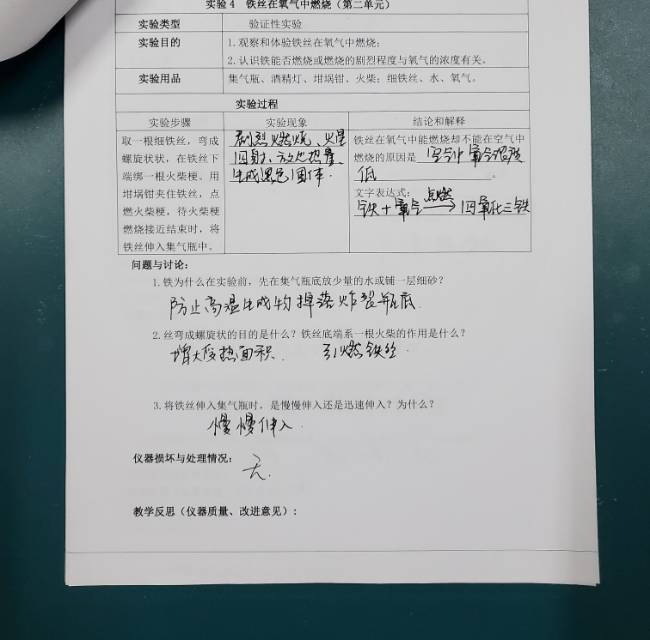 实验 4 铁丝在氧气中燃烧（第二单元）
实验类型 验证性实验
实验目的 1.观察和体验铁丝在氧气中燃烧；
2.认识铁能否燃烧或燃烧的剧烈程度与氧气的浓度有关。
实验用品 集气瓶、酒精灯、坩埚钳、火柴；细铁丝、水、氧气。
实验过程
实验步骤 实验现象 结论和解释
取一根细铁丝，弯成
螺旋状状，在铁丝下
端绑一根火柴梗。用
坩埚钳夹住铁丝，点
燃火柴梗，待火柴梗
燃烧接近结束时，将
铁丝伸入集气瓶中。
剧烈燃烧、火星
四射、放出热量、
生成黑色固体.
铁丝在氧气中能燃烧却不能在空气中
燃烧的原因是 空气中氧气浓度
低 。
文字表达式：
铁+氧气 点燃→ 四氧化三铁
问题与讨论：
1.铁为什么在实验前，先在集气瓶底放少量的水或铺一层细砂？
防止高温生成物掉落炸裂瓶底.
2.丝弯成螺旋状的目的是什么？铁丝底端系一根火柴的作用是什么？
增大受热面积. 引燃铁丝.
3.将铁丝伸入集气瓶时，是慢慢伸入还是迅速伸入？为什么？
慢慢伸入.
仪器损坏与处理情况：
无.
教学反思（仪器质量、改进意见）：